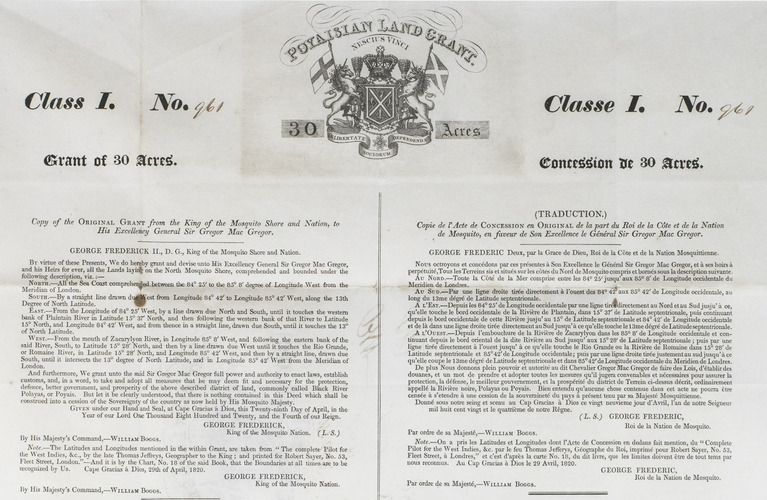 POYAISIAN LAND GRANT.
NESCIUS VINCI
Class I. No. 961
30 Acres
LIBERTATE DEPENDENDA
Grant of 30 Acres.
Copy of the ORIGINAL GRANT from the King of the Mosquito Shore and Nation, to
His Excellency General Sir Gregor Mac Gregor.
GEORGE FREDERICK II., D. G., King of the Mosquito Shore and Nation.
By virtue of these Presents, We do hereby grant and devise unto His Excellency General Sir Gregor Mac Gregor,
and his Heirs for ever, all the Lands laying on the North Mosquito Shore, comprehended and bounded under the
following description, viz. :—
NORTH.—All the Sea Coast comprehended between the 84° 25′ to the 85° 8′ degree of Longitude West from the
Meridian of London.
SOUTH.—By a straight line drawn due West from Longitude 84° 42′ to Longitude 85° 42′ West, along the 13th
Degree of North Latitude.
EAST.—From the Longitude of 84° 25′ West, by a line drawn due North and South, until it touches the western
bank of Plaintain River in Latitude 15° 37′ North, and then following the western bank of that River to Latitude
15° North, and Longitude 84° 42′ West, and from thence in a straight line, drawn due South, until it touches the 13°
of North Latitude.
WEST.—From the mouth of Zucarylyon River, in Longitude 85° 8′ West, and following the eastern bank of the
said River, South, to Latitude 15° 28′ North, and then by a line drawn due West until it touches the Rio Grande,
or Romaine River, in Latitude 15° 28′ North, and Longitude 85° 42′ West, and then by a straight line, drawn due
South, until it intersects the 13° degree of North Latitude, and in Longitude 85° 42′ West from the Meridian of
London.
And furthermore, We grant unto the said Sir Gregor Mac Gregor full power and authority to enact laws, establish
customs, and, in a word, to take and adopt all measures that he may deem fit and necessary for the protection,
defence, better government, and prosperity of the above described district of land, commonly called Black River
Polayas, or Poyais. But let it be clearly understood, that there is nothing contained in this Deed which shall be
construed into a cession of the Sovereignty of the country as now held by His Mosquito Majesty.
GIVEN under our Hand and Seal, at Cape Gracias à Dios, this Twenty-ninth Day of April, in the
Year of our Lord One Thousand Eight Hundred and Twenty, and the Fourth of our Reign.
GEORGE FREDERICK,
King of the Mosquito Nation. (L. S.)
By His Majesty's Command,—WILLIAM BOGGS.
Note.—The Latitudes and Longitudes mentioned in the within Grant, are taken from "The complete Pilot for
the West Indies, &c., by the late Thomas Jefferys, Geographer to the King; and printed for Robert Sayer, No. 53,
Fleet Street, London."—And it is by the Chart, No. 18 of the said Book, that the Boundaries at all times are to be
recognized by Us. Cape Gracias à Dios, 29th of April, 1820.
GEORGE FREDERICK,
King of the Mosquito Nation.
By His Majesty's Command,—WILLIAM BOGGS.
Classe I. No. 961
Concession de 30 Acres.
(TRADUCTION.)
Copie de l'Acte de CONCESSION en ORIGINAL de la part du Roi de la Côte et de la Nation
de Mosquito, en faveur de Son Excellence le Général Sir Gregor Mac Gregor.
GEORGE FREDERIC Deux, par la Grace de Dieu, Roi de la Côte et de la Nation Mosquitienne.
Nous octroyons et concédons par ces présentes à Son Excellence le Général Sir Gregor Mac Gregor, et à ses hoirs à
perpétuité, Tous les Terreins sis et situés sur les côtes du Nord de Mosquito compris et bornés sous la description suivante.
AU NORD.—Toute la Côté de la Mer comprise entre les 84° 25′ jusqu'aux 85° 8′ de Longitude occidentale du
Meridien de Londres.
AU SUD.—Par une ligne droite tirée directement à l'ouest des 84° 42′ aux 85° 42′ de Longitude occidentale, au
long du 13me dégré de Latitude septentrionale.
A L'EST.—Depuis les 84° 25′ de Longitude occidentale par une ligne tirée directement au Nord et au Sud jusqu'à ce
qu'elle touche le bord occidentale de la Rivière de Plantain, dans 15° 37′ de Latitude septentrionale, puis continuant
depuis le bord occidentale de cette Rivière jusqu'au 15° de Latitude septentrionale et 84° 42′ de Longitude occidentale
et de là dans une ligne droite tirée directement au Sud jusqu'à ce qu'elle touche le 13me dégré de Latitude septentrionale.
A L'OUEST.—Depuis l'embouchure de la Rivière de Zucarylyon dans les 85° 8′ de Longitude occidentale et con-
tinuant depuis le bord oriental de la dite Rivière au Sud jusqu'aux 15° 28′ de Latitude septentrionale; puis par une
ligne tirée directement à l'ouest jusqu'à ce qu'elle touche le Rio Grande ou la Rivière de Romaine dans 15° 28′ de
Latitude septentrionale et 85° 42′ de Longitude occidentale; puis par une ligne droite tirée justement au sud jusqu'à ce
qu'elle coupe le 13me dégré de Latitude septentrionale et dans 85° 42′ de Longitude occidentale du Meridien de Londres.
De plus Nous donons plein pouvoir et autorité au dit Chevalier Gregor Mac Gregor de faire des Lois, d'établir des
douanes, et un mot de prendre et adopter toutes les mesures qu'il jugera convenables et nécessaires pour assurer la
protection, la défense, le meilleur gouvernement, et la prospérité du district de Terrein ci-dessus décrit, ordinairement
appellé la Rivière noire, Polayas ou Poyais. Bien entendu qu'aucune chose contenue dans cet acte ne pourra être
censée à s'etendre à une cession de la souveraineté du pays à présent tenu par sa Majesté Mosquitienne.
Donné sous notre seing et sceau au Cap Gracias à Dios ce vingt neuvieme jour d'Avril, l'an de notre Seigneur
mil huit cent vingt et le quatrième de notre Règne.
(L. S.) GEORGE FREDERIC,
Roi de la Nation de Mosquito.
Par ordre de sa Majesté,—WILLIAM BOGGS.
Note.—On a pris les Latitudes et Longitudes dont l'Acte de Concession en dedans fait mention, du "Complete
Pilot for the West Indies, &c. par le feu Thomas Jefferys, Géographe du Roi, imprimé pour Robert Sayer, No. 53,
Fleet Street, à Londres," et c'est d'après la carte No. 18, du dit livre, que les limites doivent être de tout tems par
nous reconnus. Au Cap Gracias à Dios le 29 Avril, 1820.
GEORGE FREDERIC,
Roi de la Nation de Mosquito.
Par ordre de sa Majesté,—WILLIAM BOGGS.